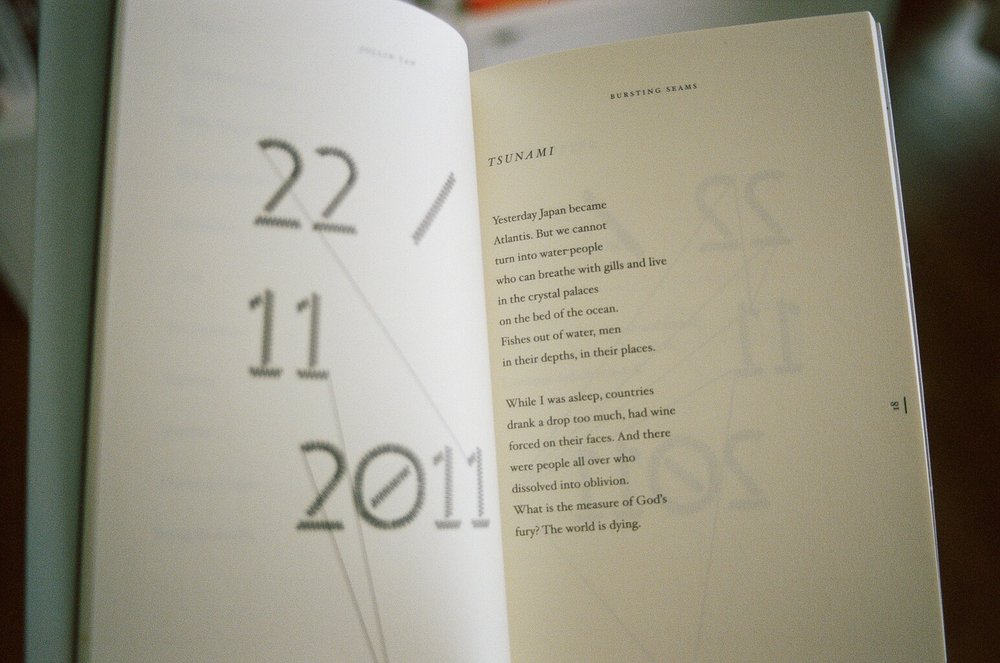 22 /
11
2011
BURSTING SEAMS
TSUNAMI
Yesterday Japan became
Atlantis. But we cannot
turn into water-people
who can breathe with gills and live
in the crystal palaces
on the bed of the ocean.
Fishes out of water, men
in their depths, in their places.
While I was asleep, countries
drank a drop too much, had wine
forced on their faces. And there
were people all over who
dissolved into oblivion.
What is the measure of God's
fury? The world is dying.
18